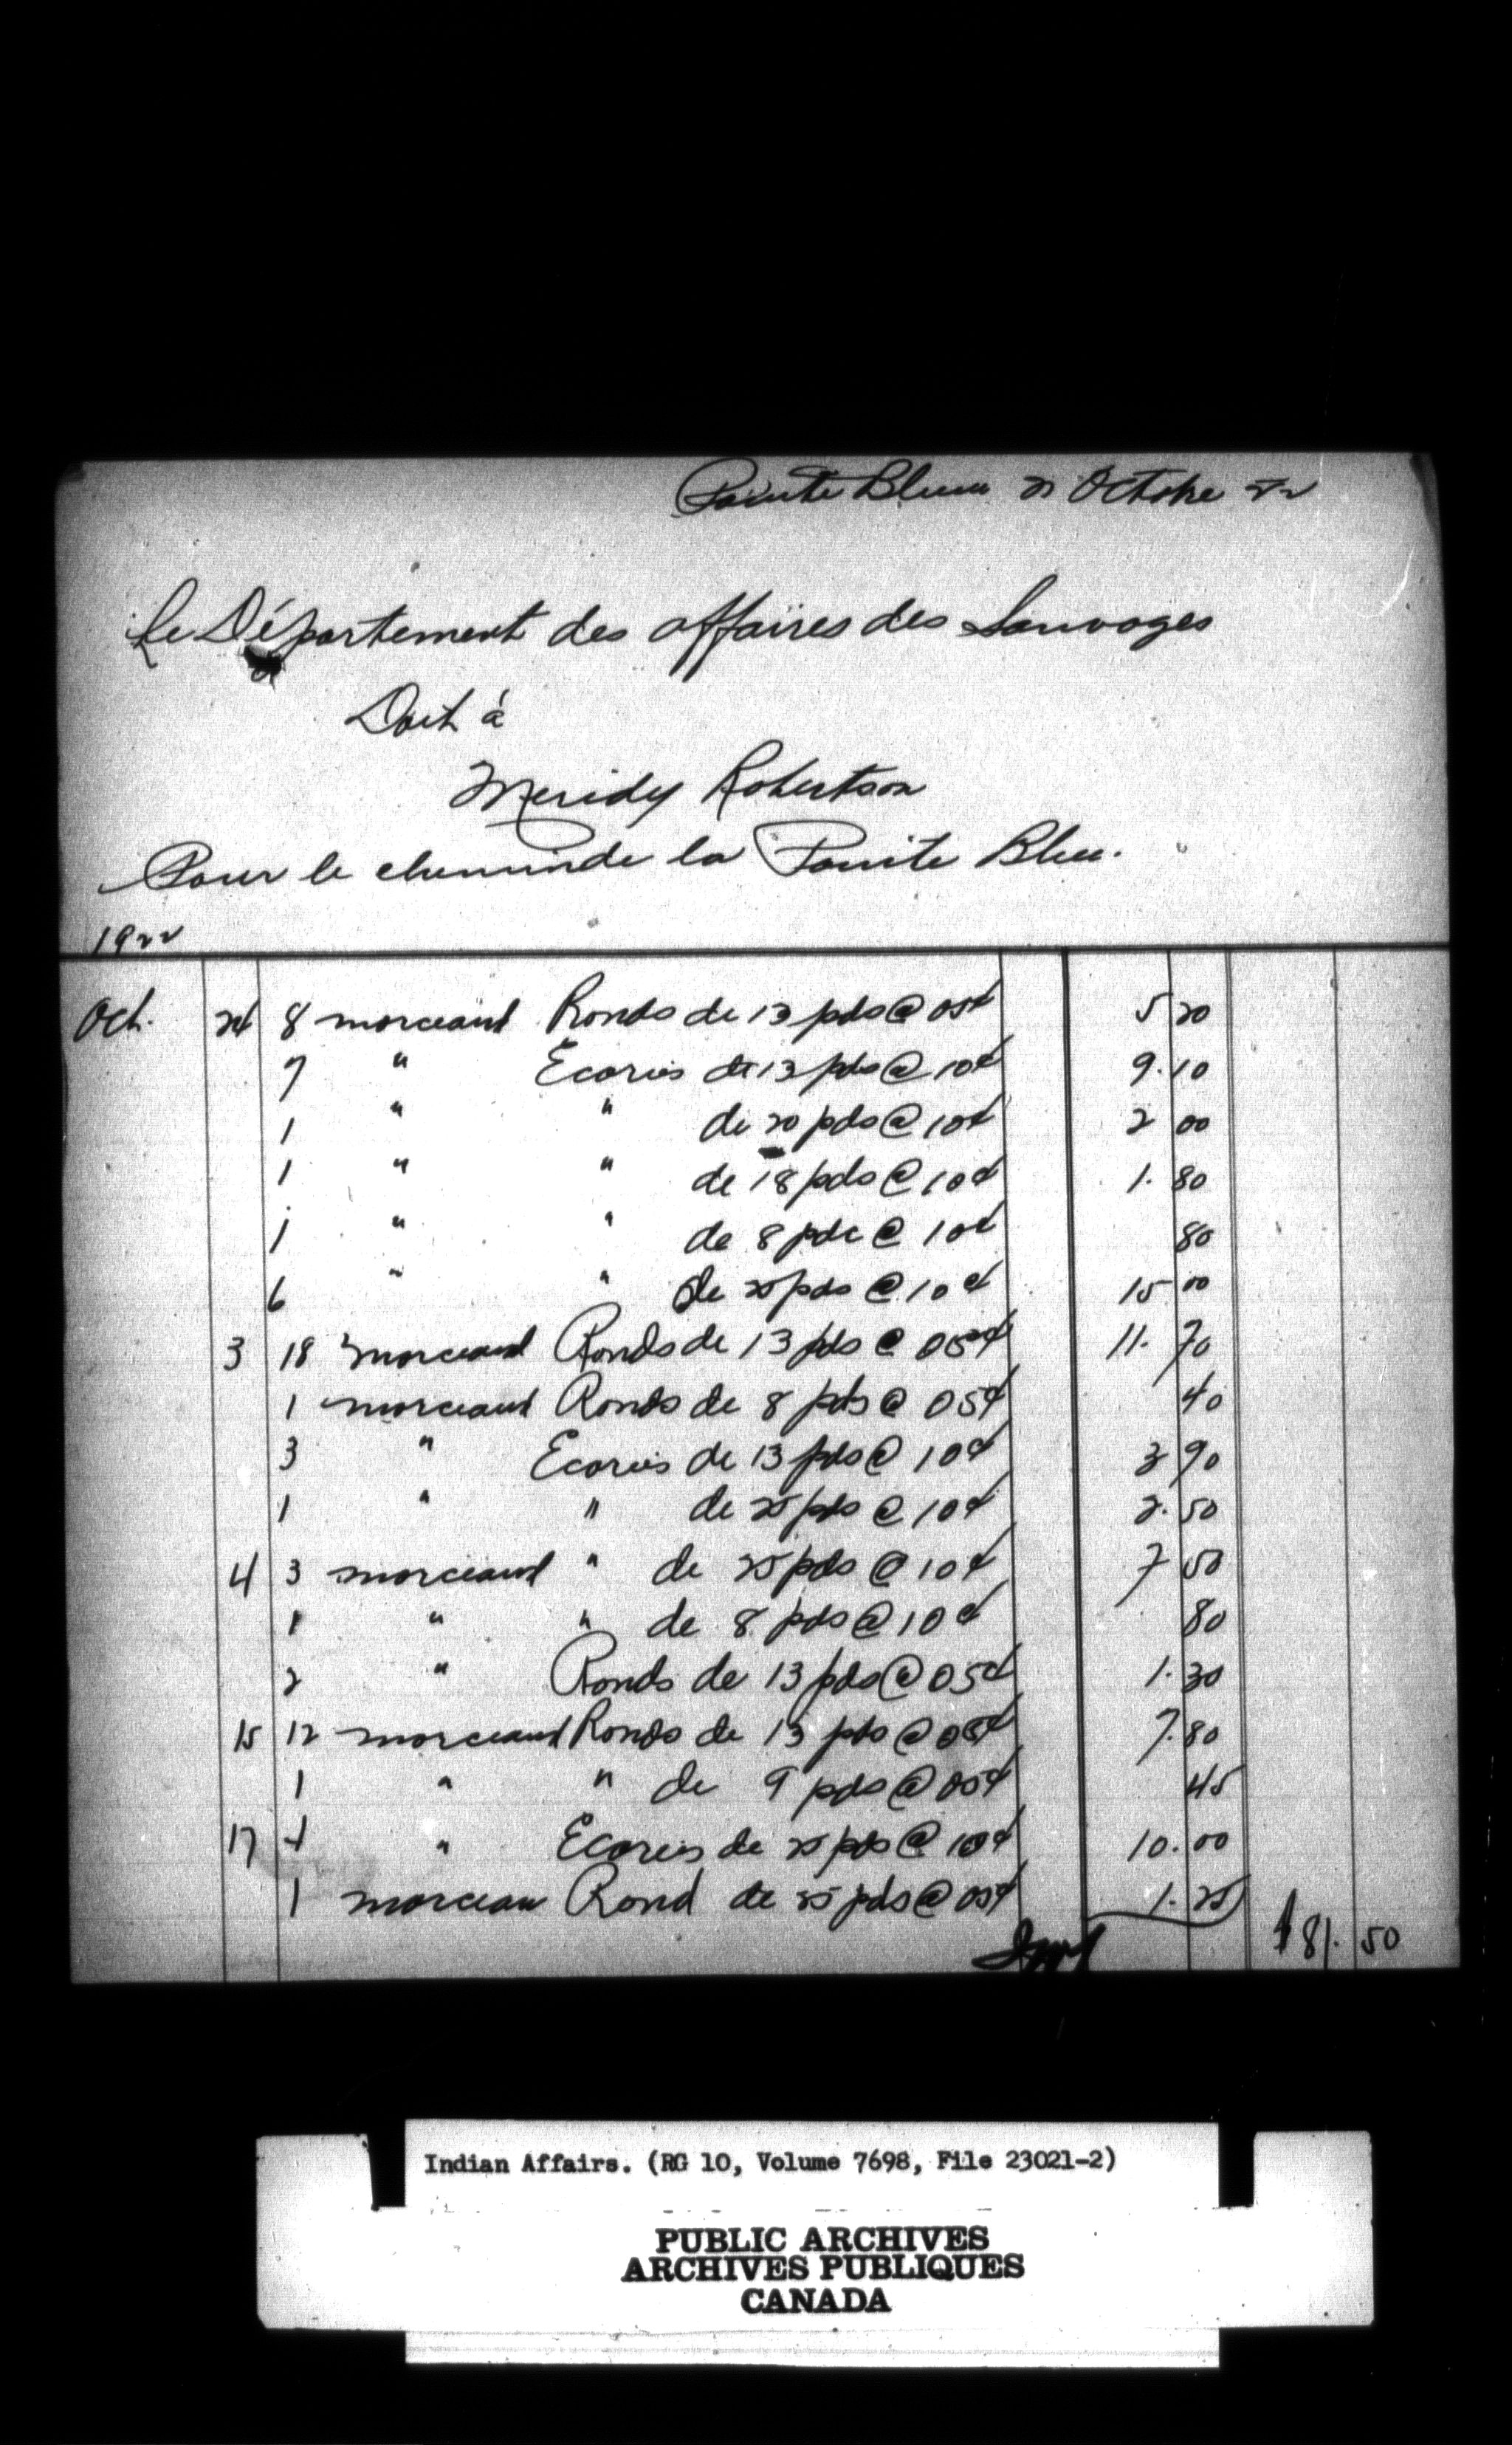 Pointe Bleue 21 Octobre 22
Le Département des affaires des Sauvages
Doit à
Meridey Robertson
Pour le chemin de la Pointe Bleu.
1922
Oct. 8 morceaux Ronds de 13 pds @ 05¢ 5 20
7 " Ecories de 13 pds @ 10¢ 9.10
1 " " de 20 pds @ 10¢ 2 00
1 " " de 18 pds @ 10¢ 1.80
1 " " de 8 pds @ 10¢ 80
6 " " de 25 pds @ 10¢ 15 00
3 18 morceaux Ronds de 13 pds @ 05¢ 11.70
1 morceaux Ronds de 8 pds @ 05¢ 40
3 " Ecories de 13 pds @ 10¢ 3 90
1 " " de 25 pds @ 10¢ 2.50
4 3 morceaux " de 25 pds @ 10¢ 7 50
1 " " de 8 pds @ 10¢ 80
2 " Ronds de 13 pds @ 05¢ 1.30
15 12 morceaux Ronds de 13 pds @ 05¢ 7.80
1 " " de 9 pds @ 05¢ 45
17 4 " Ecories de 25 pds @ 10¢ 10.00
1 morceau Rond de 25 pds @ 05¢ 1.25
$81.50
Indian Affairs. (RG 10, Volume 7698, File 23021-2)
PUBLIC ARCHIVES
ARCHIVES PUBLIQUES
CANADA